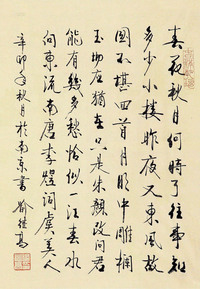 春花秋月何時了往事知
多少小樓昨夜又東風故
國不堪回首月明中雕欄
玉砌應猶在只是朱顏改問君
能有幾多愁恰似一江春水
向東流南唐李煜詞虞美人
辛卯年秋月於南京書喻继高